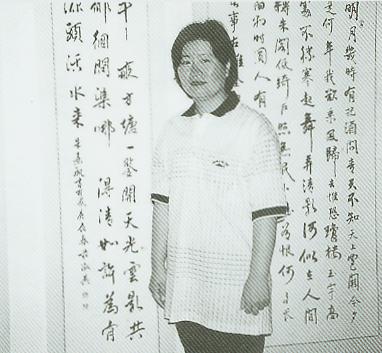 明月幾時有把酒問青天不知天上宮闕今夕
是何年我欲乘風歸去惟恐瓊樓玉宇高
處不勝寒起舞弄清影何似在人間
轉朱閣低綺戶照無眠不應有恨何事長
向別時圓人有
事古難
半畝方塘一鑒開天光雲影共
徘徊問渠哪得清如許為有
源頭活水來
朱熹觀書有感庚辰春